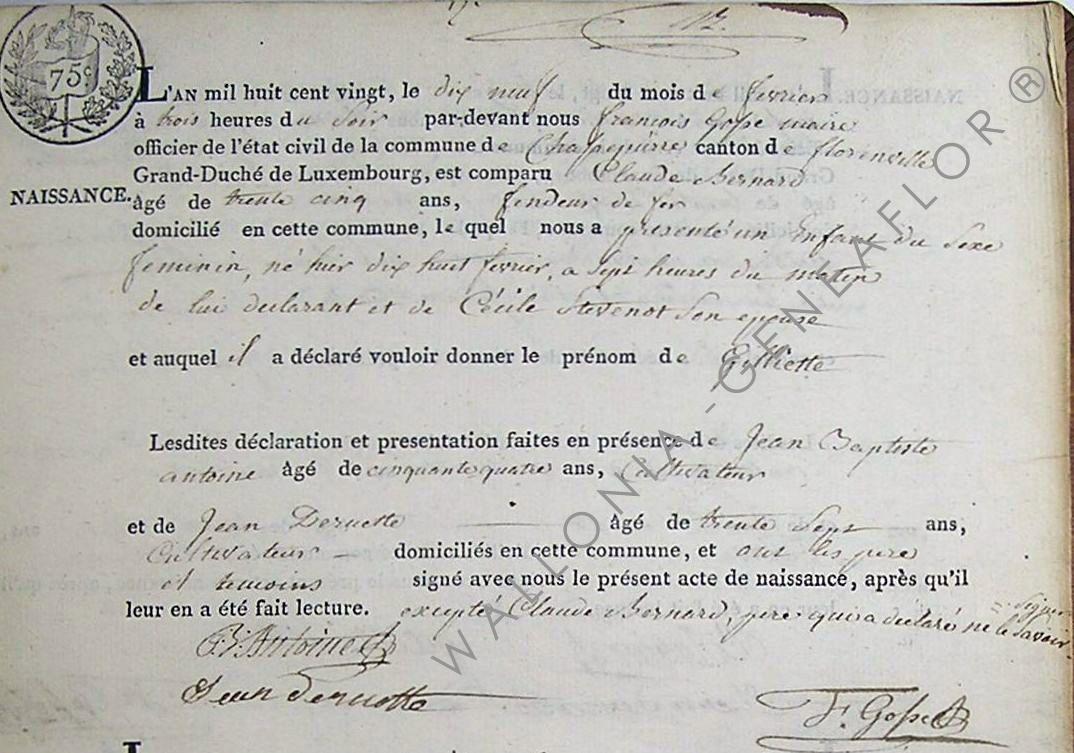 75c
L'AN mil huit cent vingt, le dix neuf du mois de fevrier
à trois heures du Soir par-devant nous françois Gosse maire
officier de l'état civil de la commune de canton de florenville
NAISSANCE. Grand-Duché de Luxembourg, est comparu Claude Bernard
âgé de trente cinq ans, fendeur de fer
domicilié en cette commune, le quel nous a présenté un Enfant du Sexe
feminin, né hier dix huit fevrier, a sept heures du matin
de lui declarant et de Cécile Stevenot Son epouse
et auquel il a déclaré vouloir donner le prénom de
Lesdites déclaration et presentation faites en présence de Jean Baptiste
antoine âgé de cinquante quatre ans, Cultivateur
et de Jean Deruette âgé de trente Sept ans,
Cultivateur domiciliés en cette commune, et ont les pere
et temoins signé avec nous le présent acte de naissance, après qu'il
leur en a été fait lecture. excepté Claude Bernard, pere qui a declaré ne le Savoir
= Signer
B: Antoine
Jean Deruette
F. Gosse
WALLONIA-GENEAFLOR ®